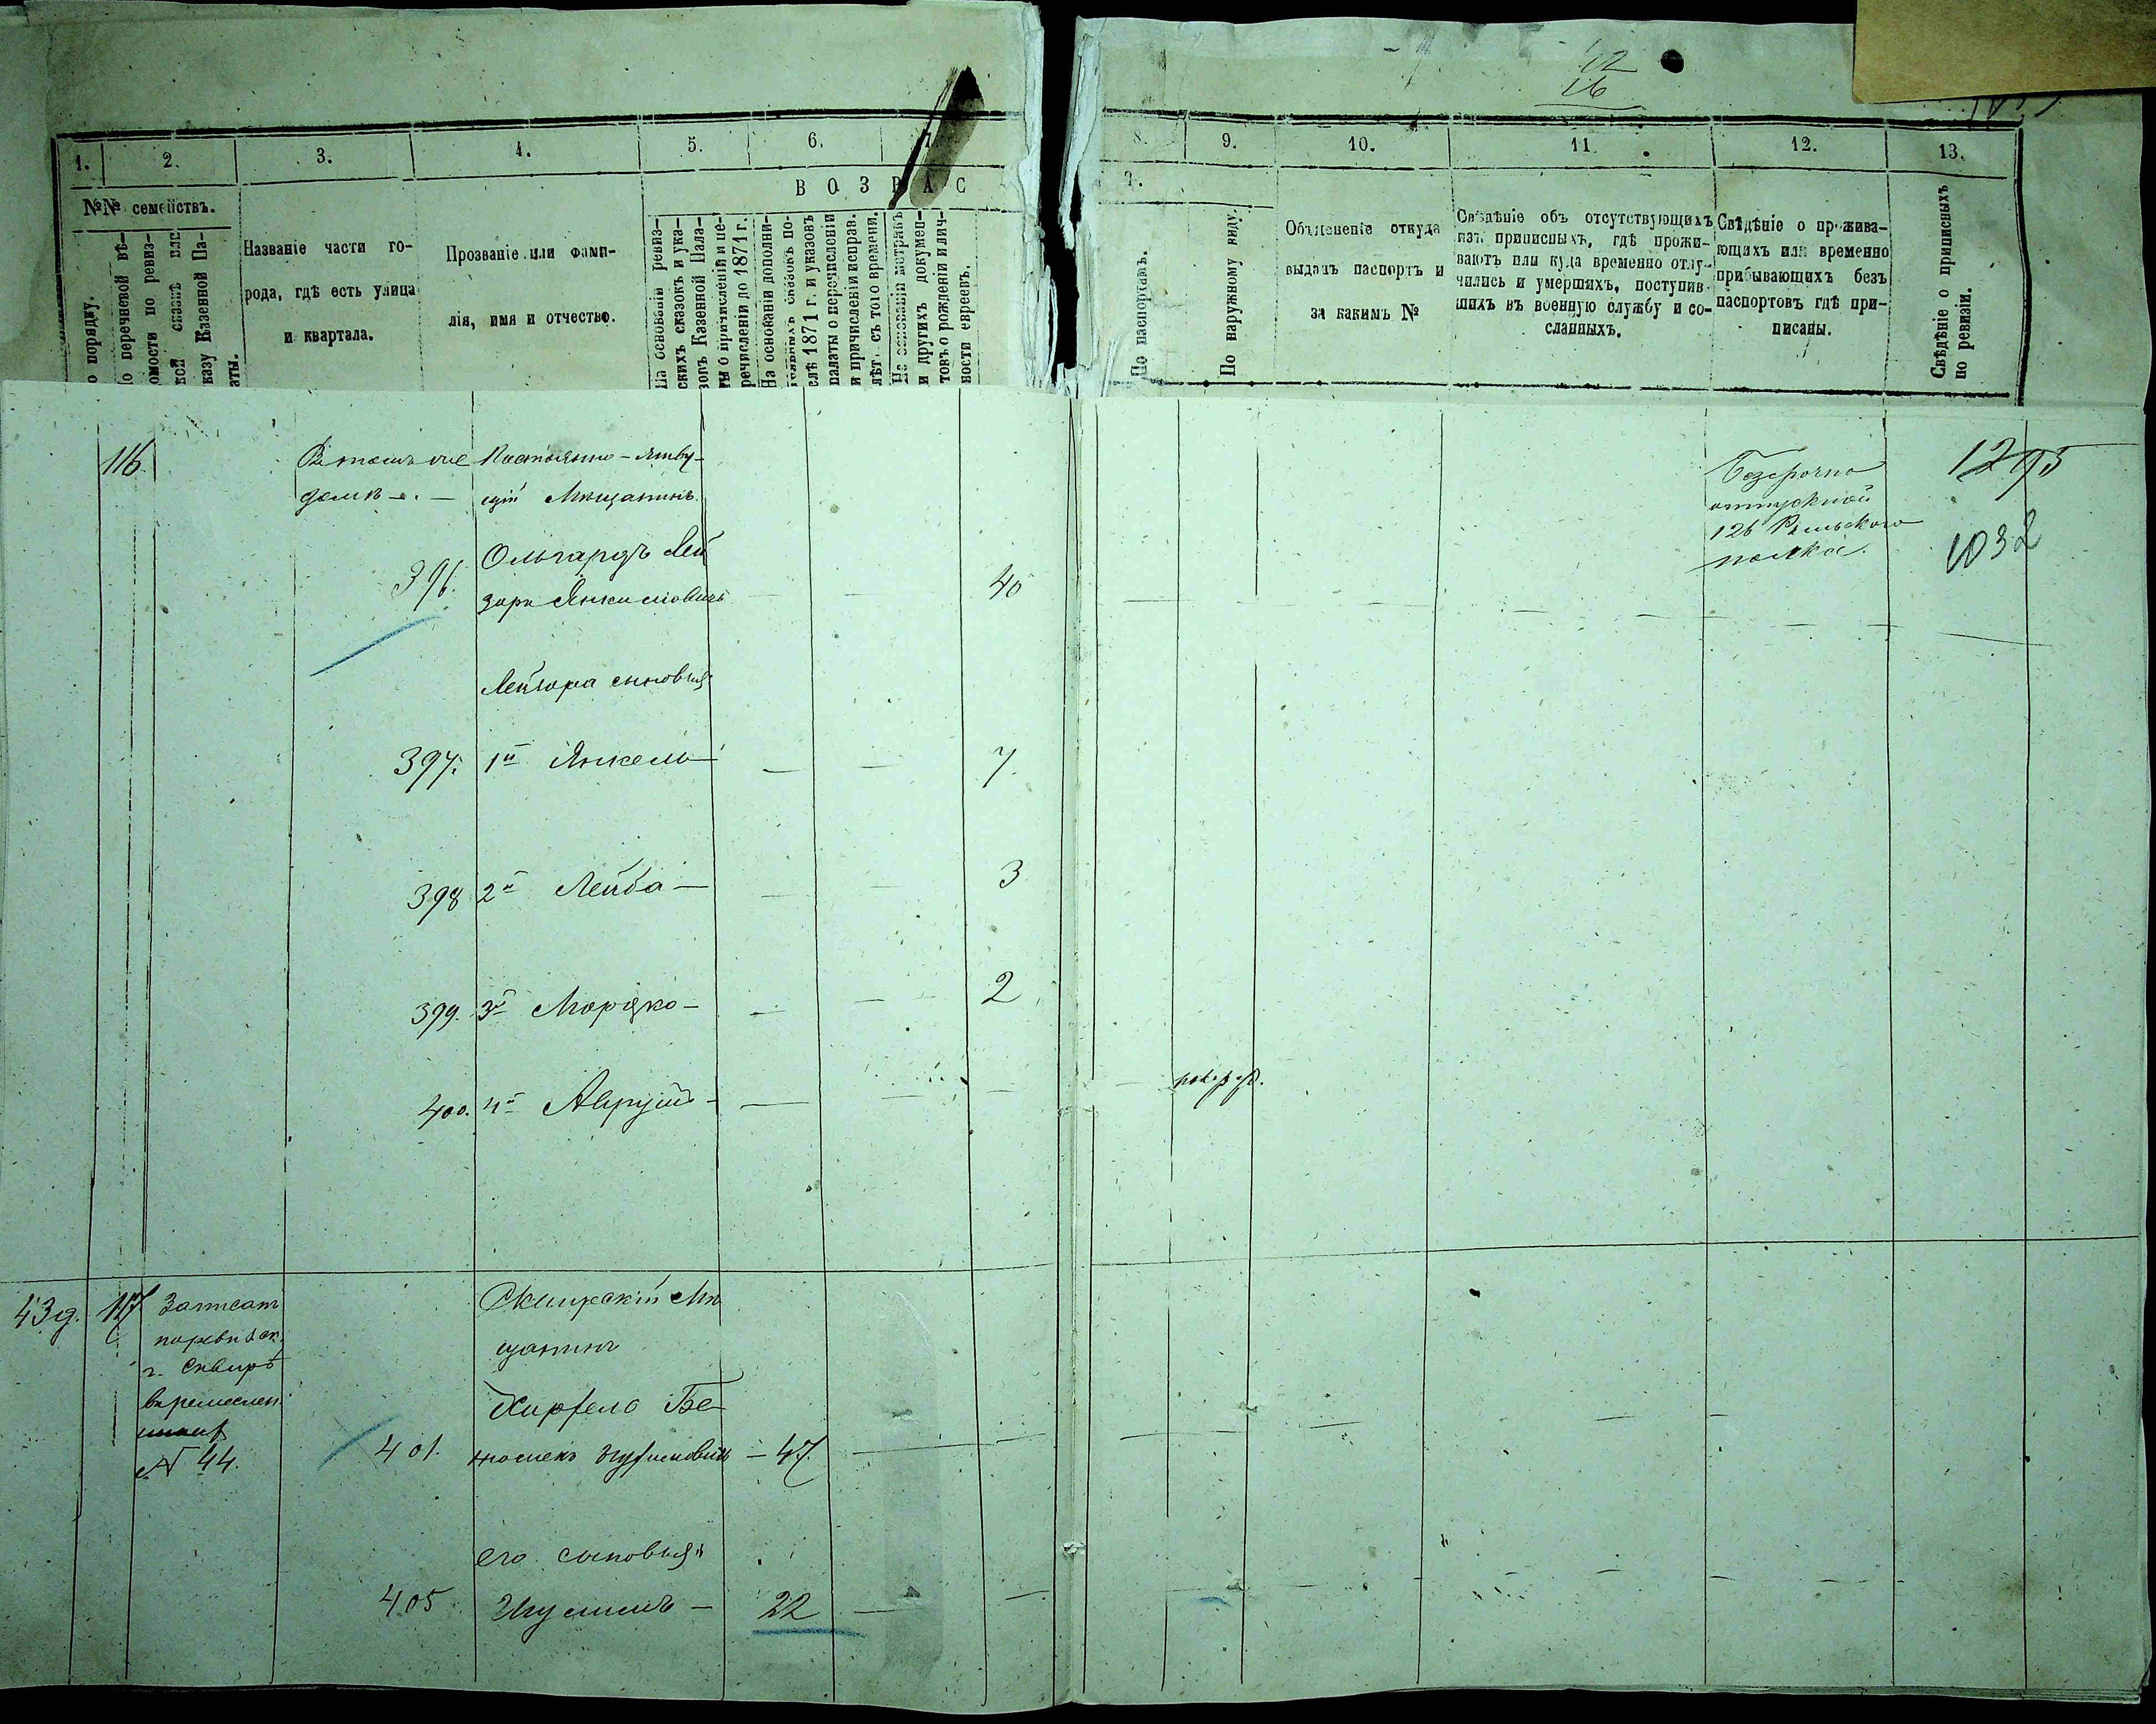 12
16
1. 2. 3. 4. 5. 6. 7. 8. 9. 10. 11. 12. 13.
ВОЗРАС Т.
№№ семействъ.
о порядку.
о перечневой вѣ-
омости по ревиз-
кой сказкѣ или
казу Казенной Па-
аты.
Названіе части го-
рода, гдѣ есть улица
и квартала.
Прозваніе или фами-
лія, имя и отчество.
На основаніи ревиз-
скихъ сказокъ и ука-
зовъ Казенной Пала-
ты о причисленіи и пе-
речисленіи до 1871 г.
На основаніи дополни-
тельныхъ сказокъ по-
слѣ 1871 г. и указовъ
палаты о перечисленіи
и причисленіи исправ.
лѣт. съ того времени.
На основаніи метрикъ
и другихъ докумен-
товъ о рожденіи и лич-
ности евреевъ.
По паспортамъ.
По наружному виду.
Объясненіе откуда
выданъ паспортъ и
за какимъ №
Свѣдѣніе объ отсутствующихъ
изъ приписныхъ, гдѣ прожи-
ваютъ или куда временно отлу-
чились и умершихъ, поступив-
шихъ въ военную службу и со-
сланныхъ.
Свѣдѣніе о прожива-
ющихъ или временно
прибывающихъ безъ
паспортовъ гдѣ при-
писаны.
Свѣдѣніе о приписныхъ
по ревизіи.
116.
Въ томъ же
домѣ
Мѣщанинъ
396.
Ольгардъ Лей
зоръ Янкелевичъ
40
Безсрочно
отпускной
126 Рыльскаго
полка.
1295
1032
Лейзора сыновья
397. 1й Янкель 7.
398 2й Лейба 3
399. 3й Мордко 2
400. 4й Аврумъ
новорожд.
43 д. 117
Записан
г. Сквирѣ
в ремеслен
№ 44.
Сквирскій Мѣ
щанинъ
401.
47.
его сыновья
405
22